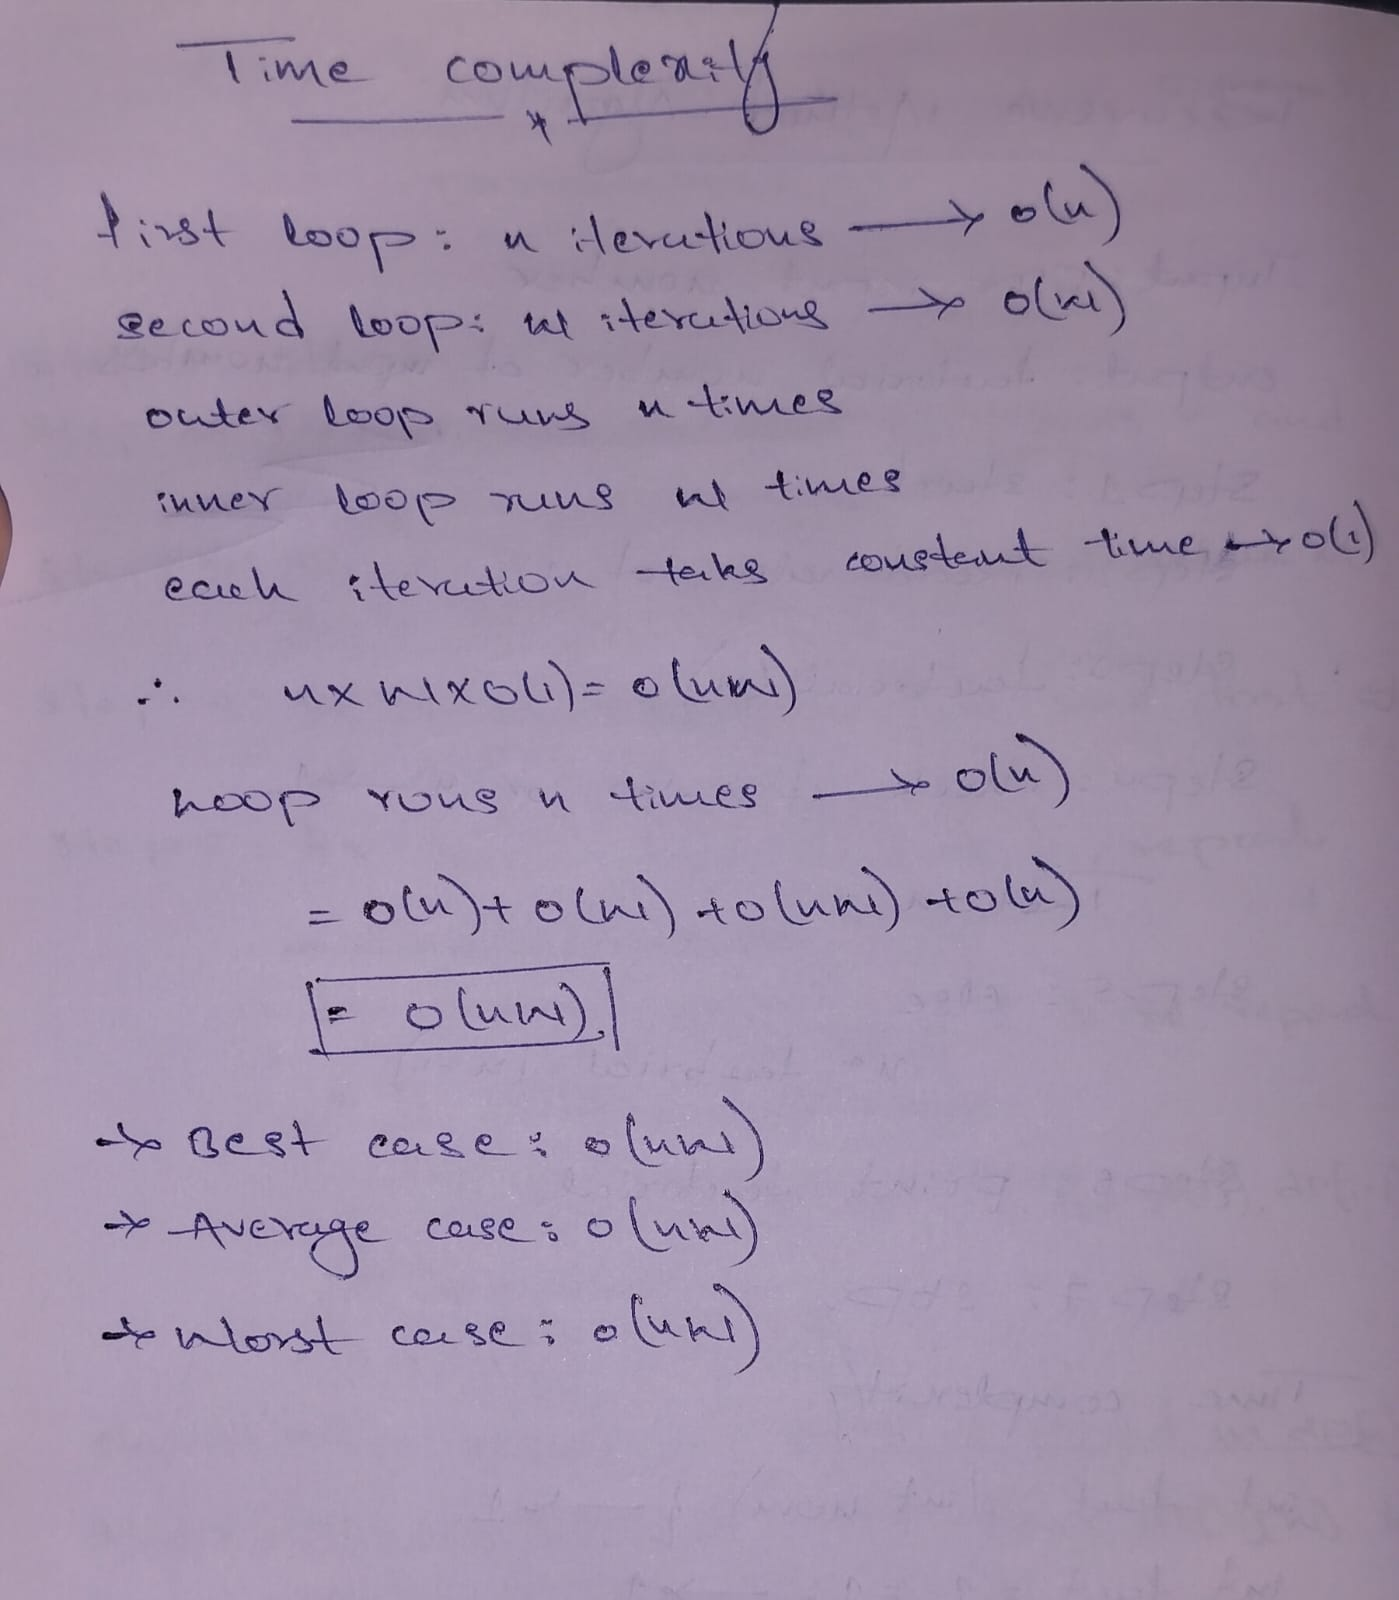 Time complexity
first loop: n iterations → O(n)
second loop: W iterations → O(W)
outer loop runs n times
inner loop runs W times
each iteration takes constant time → O(1)
∴ n x W x O(1) = O(nW)
Loop runs n times → O(n)
= O(n) + O(W) + O(nW) + O(n)
= O(nW).
→ Best case: O(nW)
→ Average case: O(nW)
→ Worst case: O(nW)